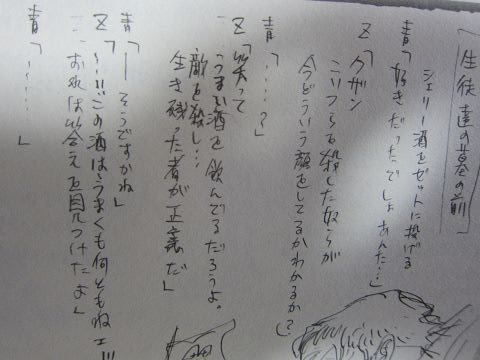 生徒達の墓の前
シェリー酒をゼットに投げる
青「好きだったでしょあんた…」
Z「クザン
こいつらを殺した奴らが
今どういう顔をしてるかわかるか？」
青「……？」
Z「笑って
うまい酒を飲んでるだろうよ。
敵を殺し…
生き残った者が正義だ」
青「――そうですかね」
Z「…!!!この酒はうまくも何ともねェ!!!
おれは答えを見つけたよ」
青「……」